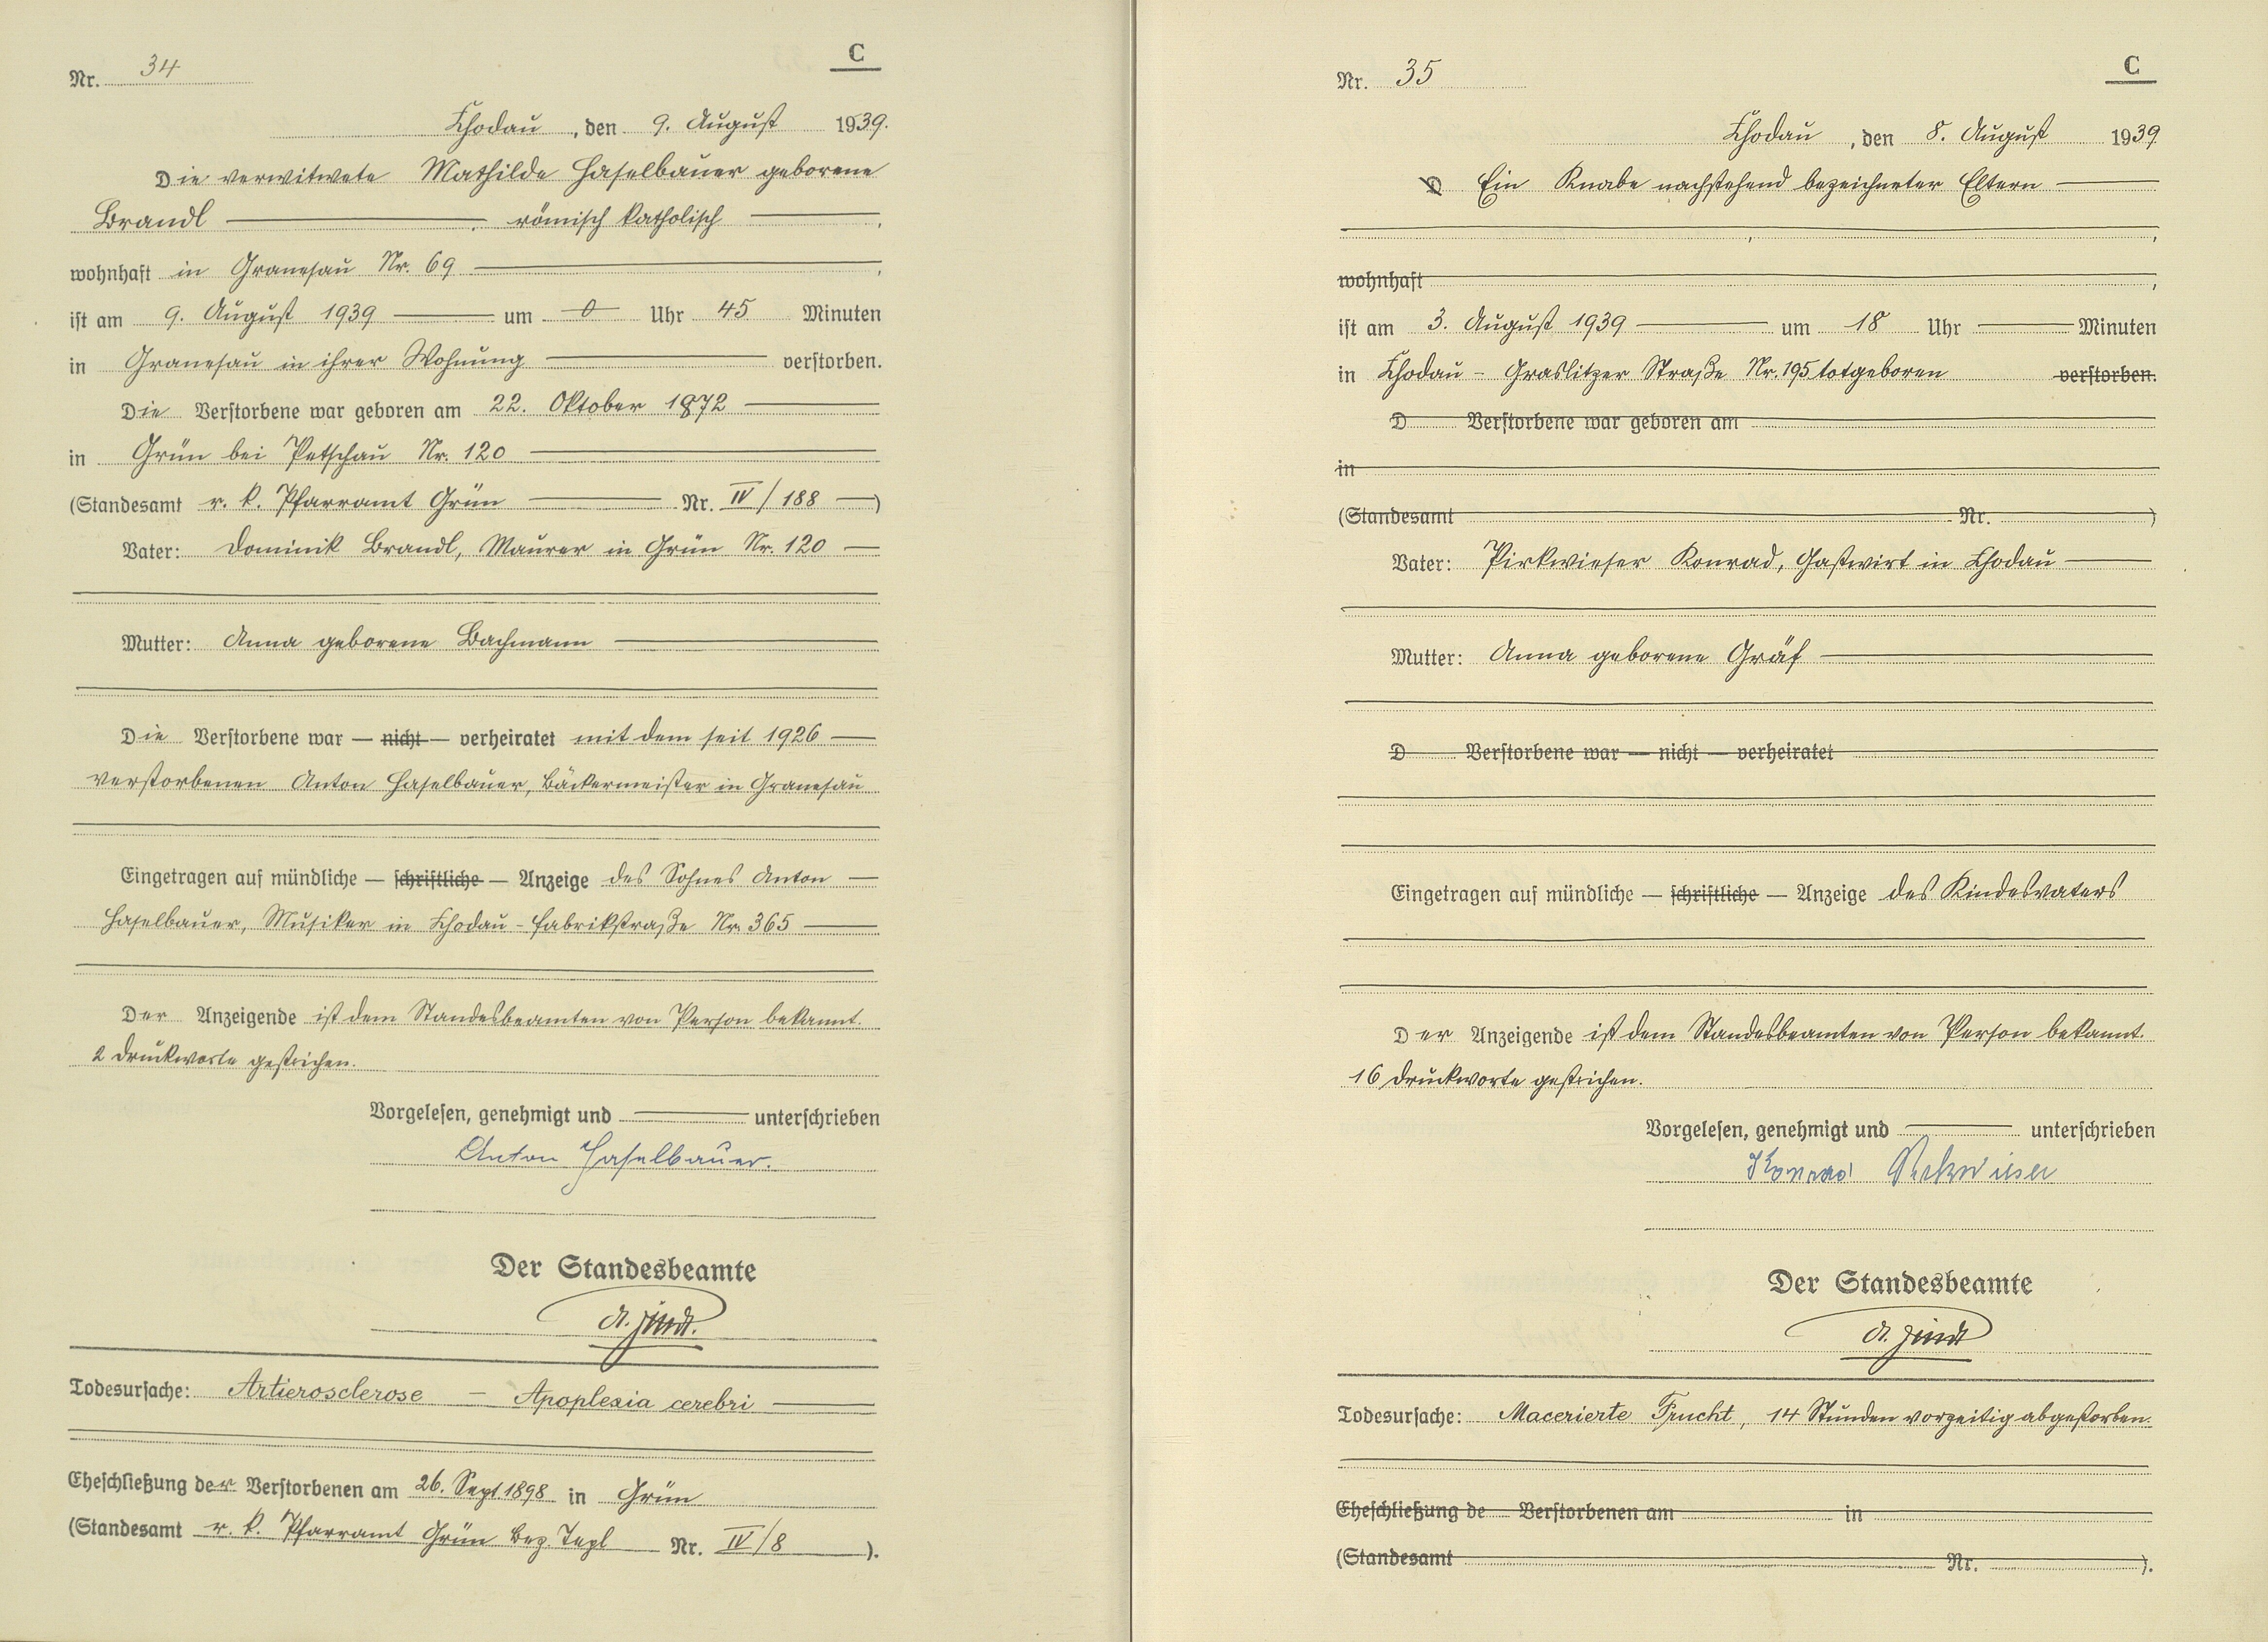 C
Nr. 34
Chodau, den 9. August 1939.
Die verwitwete Mathilde Haselbauer geborene
Brandl, römisch katholisch,
wohnhaft in Granesau Nr. 69,
ist am 9. August 1939 um 0 Uhr 45 Minuten
in Granesau in ihrer Wohnung verstorben.
Die Verstorbene war geboren am 22. Oktober 1872
in Grün bei Petschau Nr. 120
(Standesamt r. k. Pfarramt Grün Nr. IV/188)
Vater: Dominik Brandl, Maurer in Grün Nr. 120
Mutter: Anna geborene Bachmann
Die Verstorbene war — nicht — verheiratet mit dem seit 1926
verstorbenen Anton Haselbauer, Bäckermeister in Granesau
Eingetragen auf mündliche — schriftliche — Anzeige des Sohnes Anton
Haselbauer, Musiker in Chodau - Fabrikstraße Nr. 365
Der Anzeigende ist dem Standesbeamten von Person bekannt.
2 Druckworte gestrichen.
Vorgelesen, genehmigt und unterschrieben
Anton Haselbauer.
Der Standesbeamte
Todesursache: Artierosclerose — Apoplexia cerebri
Eheschließung der Verstorbenen am 26. Sept. 1898 in Grün
(Standesamt r. k. Pfarramt Grün Bez. Tepl Nr. IV/8).
C
Nr. 35
Chodau, den 8. August 1939
D Ein Knabe nachstehend bezeichneter Eltern
,
wohnhaft,
ist am 3. August 1939 um 18 Uhr Minuten
in Chodau - Graslitzer Straße Nr. 195 totgeboren verstorben.
D Verstorbene war geboren am
in
(Standesamt Nr. )
Vater: Pirkwieser Konrad, Gastwirt in Chodau
Mutter: Anna geborene Gräf
D Verstorbene war — nicht — verheiratet
Eingetragen auf mündliche — schriftliche — Anzeige des Kindesvaters
Der Anzeigende ist dem Standesbeamten von Person bekannt
16 Druckworte gestrichen.
Vorgelesen, genehmigt und unterschrieben
Konrad Pirkwieser
Der Standesbeamte
Todesursache: Macerierte Frucht, 14 Stunden vorzeitig abgestorben.
Eheschließung de Verstorbenen am in
(Standesamt Nr. ).